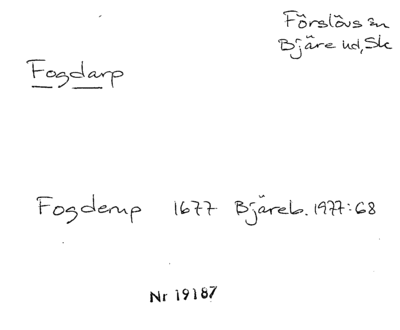 Förslövs sn
Bjäre hd, Sk
Fogdarp
Fogderup 1677 Bjäreb. 1977:68
Nr 19187